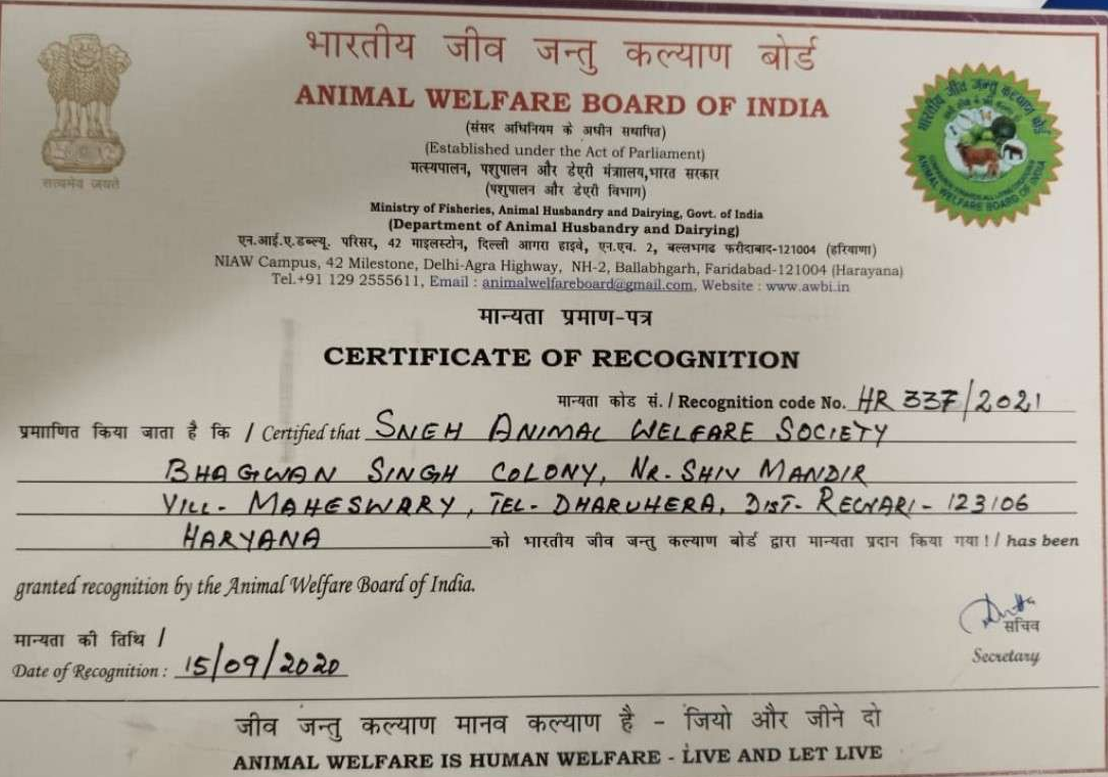 भारतीय जीव जन्तु कल्याण बोर्ड
ANIMAL WELFARE BOARD OF INDIA
(संसद अधिनियम के अधीन सथापित)
(Established under the Act of Parliament)
मत्स्यपालन, पशुपालन और डेएरी मंत्राालय,भारत सरकार
(पशुपालन और डेएरी विभाग)
Ministry of Fisheries, Animal Husbandry and Dairying, Govt. of India
(Department of Animal Husbandry and Dairying)
एन.आई.ए.डब्ल्यू. परिसर, 42 माइलस्टोन, दिल्ली आगरा हाइवे, एन.एच. 2, बल्लभगढ फरीदाबाद-121004 (हरियाणा)
NIAW Campus, 42 Milestone, Delhi-Agra Highway, NH-2, Ballabhgarh, Faridabad-121004 (Harayana)
Tel.+91 129 2555611, Email : animalwelfareboard@gmail.com, Website : www.awbi.in
सत्यमेव जयते
भारतीय जीव जन्तु कल्याण बोर्ड
ANIMAL WELFARE BOARD OF INDIA
मान्यता प्रमाण-पत्र
CERTIFICATE OF RECOGNITION
मान्यता कोड सं. / Recognition code No. HR 337/2021
प्रमााणित किया जाता है कि / Certified that SNEH ANIMAL WELFARE SOCIETY
BHAGWAN SINGH COLONY, NR. SHIV MANDIR
VILL- MAHESWARY, TEL- DHARUHERA, DIST- REWARI - 123106
HARYANA को भारतीय जीव जन्तु कल्याण बोर्ड द्वारा मान्यता प्रदान किया गया !/ has been
granted recognition by the Animal Welfare Board of India.
मान्यता की तिथि /
Date of Recognition : 15/09/2020
सचिव
Secretary
जीव जन्तु कल्याण मानव कल्याण है - जियो और जीने दो
ANIMAL WELFARE IS HUMAN WELFARE - LIVE AND LET LIVE